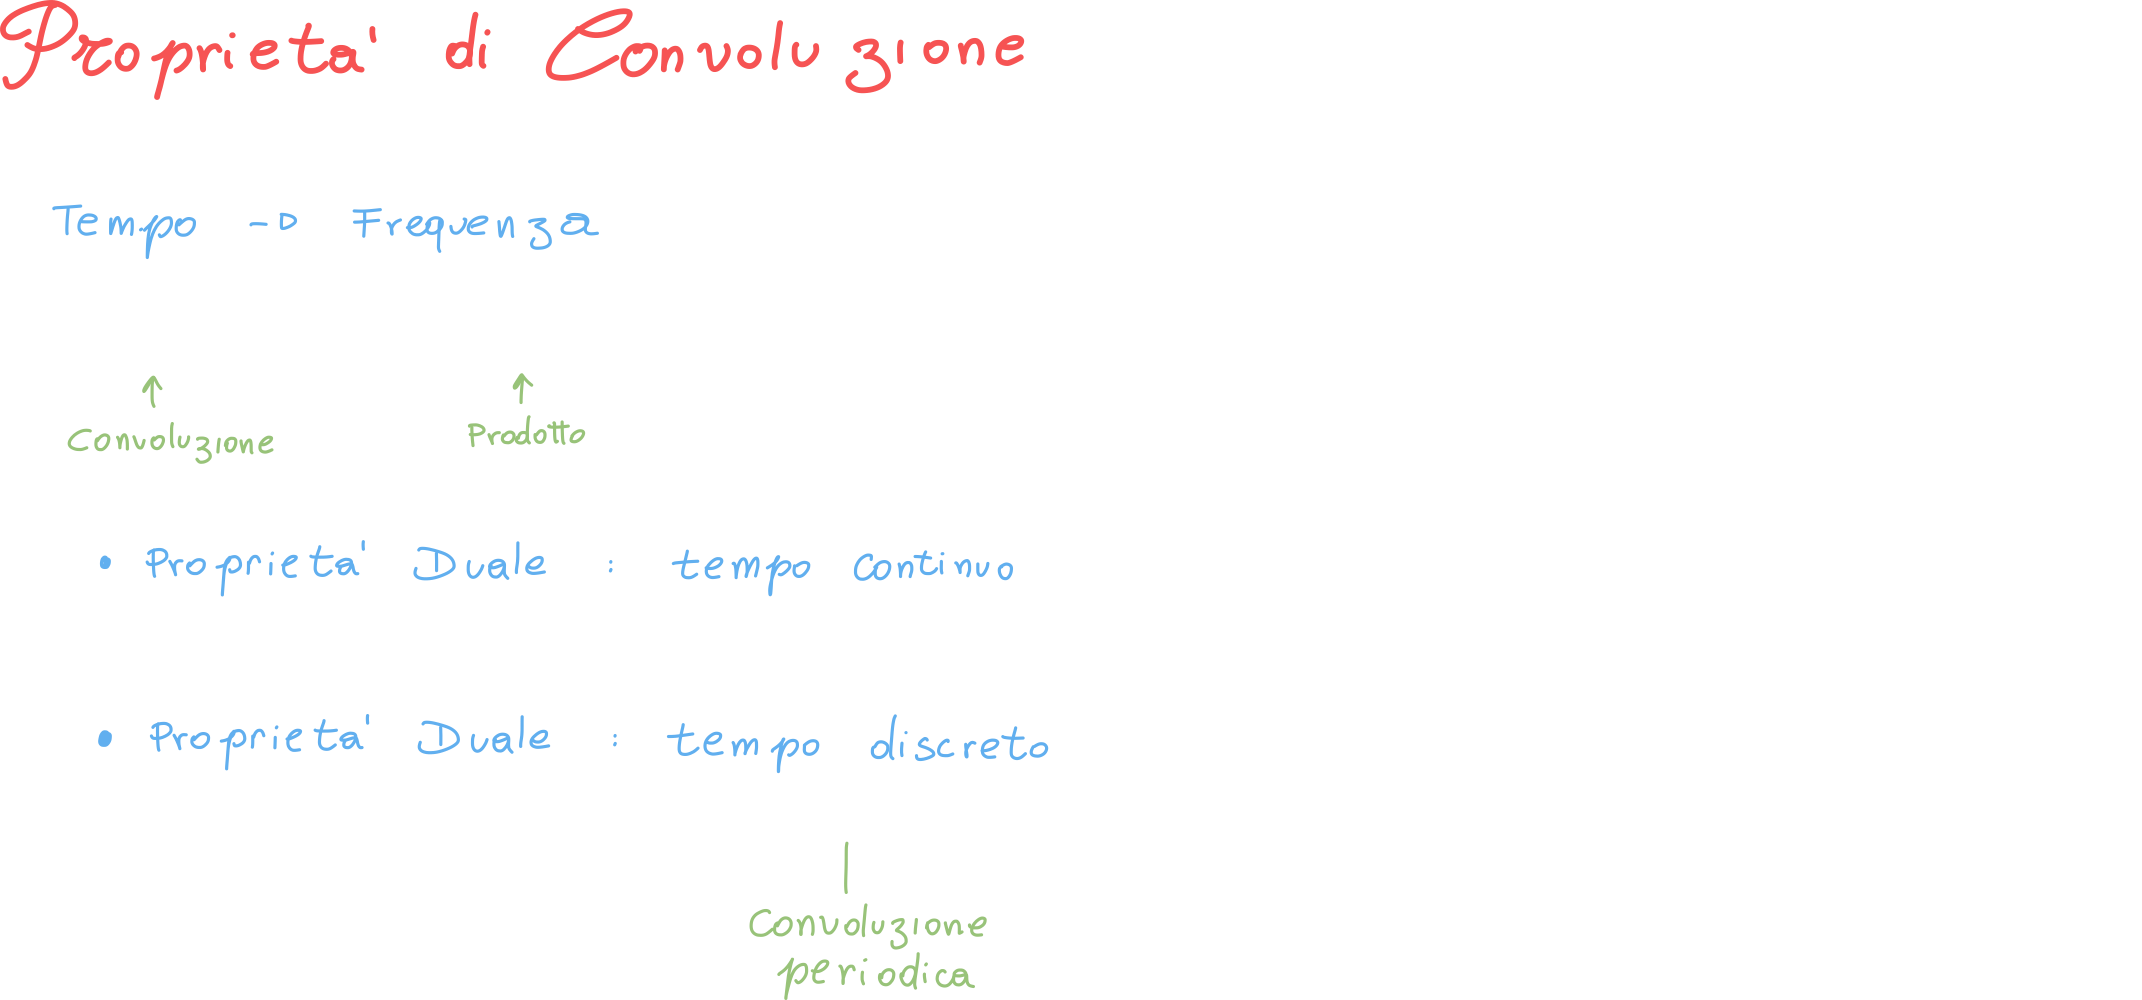 Proprieta' di Convoluzione
Tempo -> Frequenza
Convoluzione Prodotto
• Proprieta' Duale : tempo continuo
• Proprieta' Duale : tempo discreto
Convoluzione
periodica